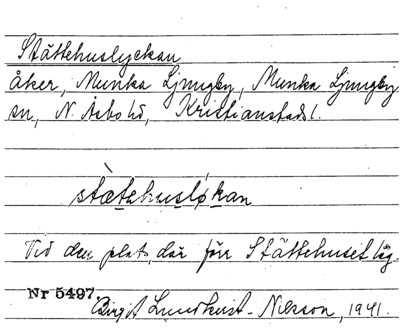 Stättehuslyckan
åker, Munka Ljungby, Munka Ljungby
sn, N. Åsbo hd, Kristianstads l.
stætehusløkan
Vid den plats, där förr Stättehuset låg.
Nr 5497.
Birgit Lundkvist-Nilsson, 1941.